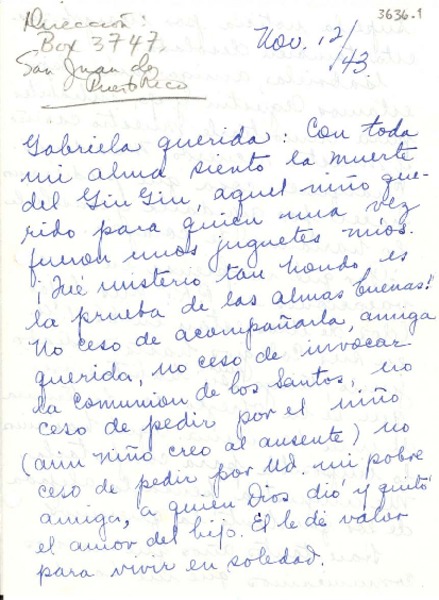 3636.1
Dirección:
Box 3747
San Juan de
Puerto Rico
Nov. 12/43
Gabriela querida: Con toda
mi alma siento la muerte
del Gin Gin, aquel niño que-
rido para quien una vez
fueron unos juguetes míos.
¡Qué misterio tan hondo es
la prueba de las almas buenas!
No ceso de acompañarla, amiga
querida, no ceso de invocar
la Comunion de los Santos, no
ceso de pedir por el niño
(aún niño creo al ausente) no
ceso de pedir por Ud. mi pobre
amiga, a quien Dios dió y quitó
el amor del hijo. Él le dé valor
para vivir en soledad.